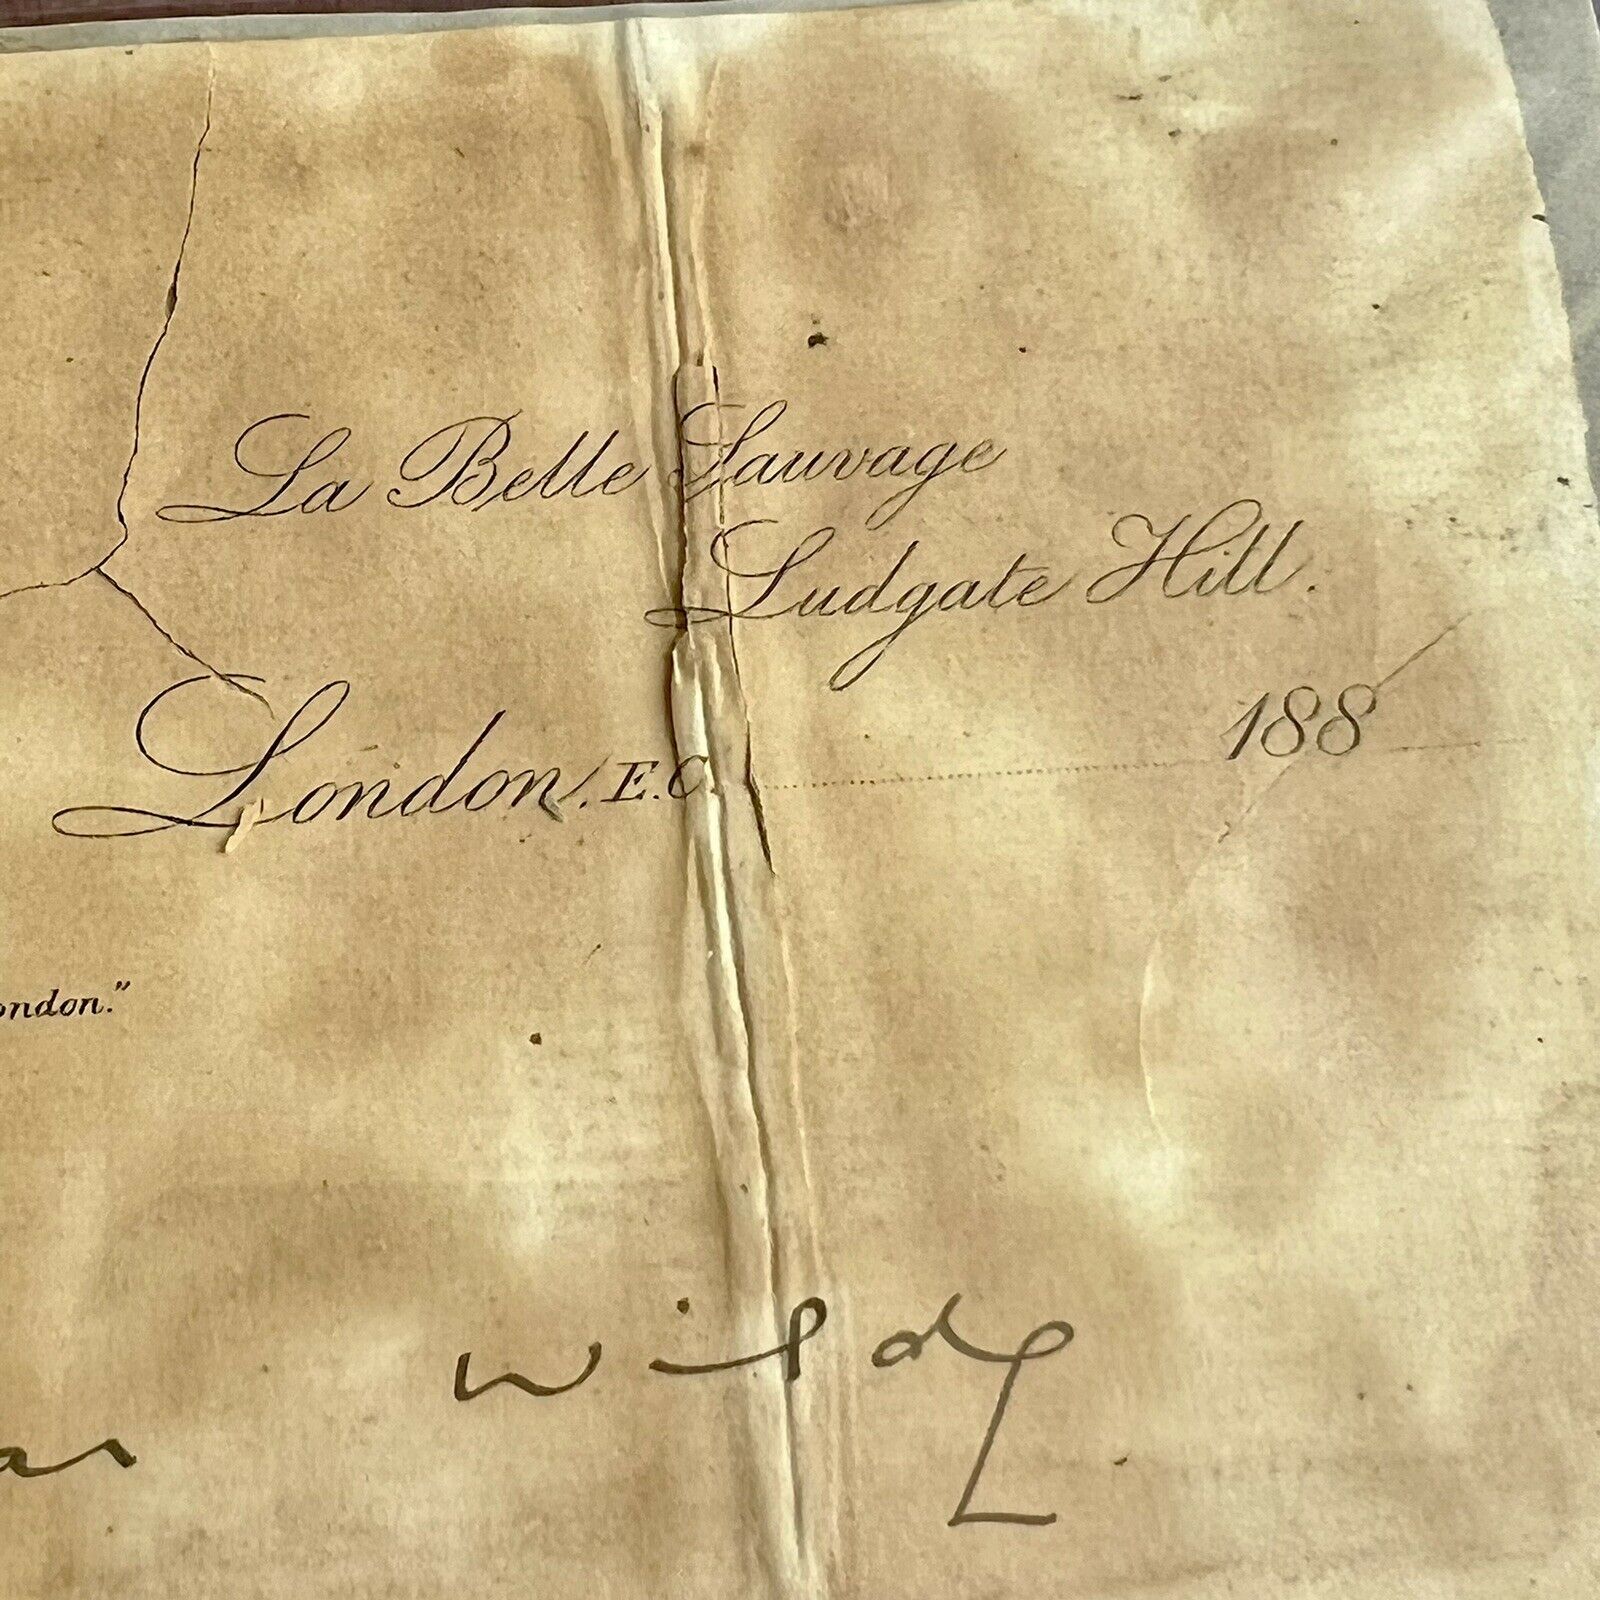 La Belle Sauvage
Ludgate Hill.
London. E.C. 188
ondon."